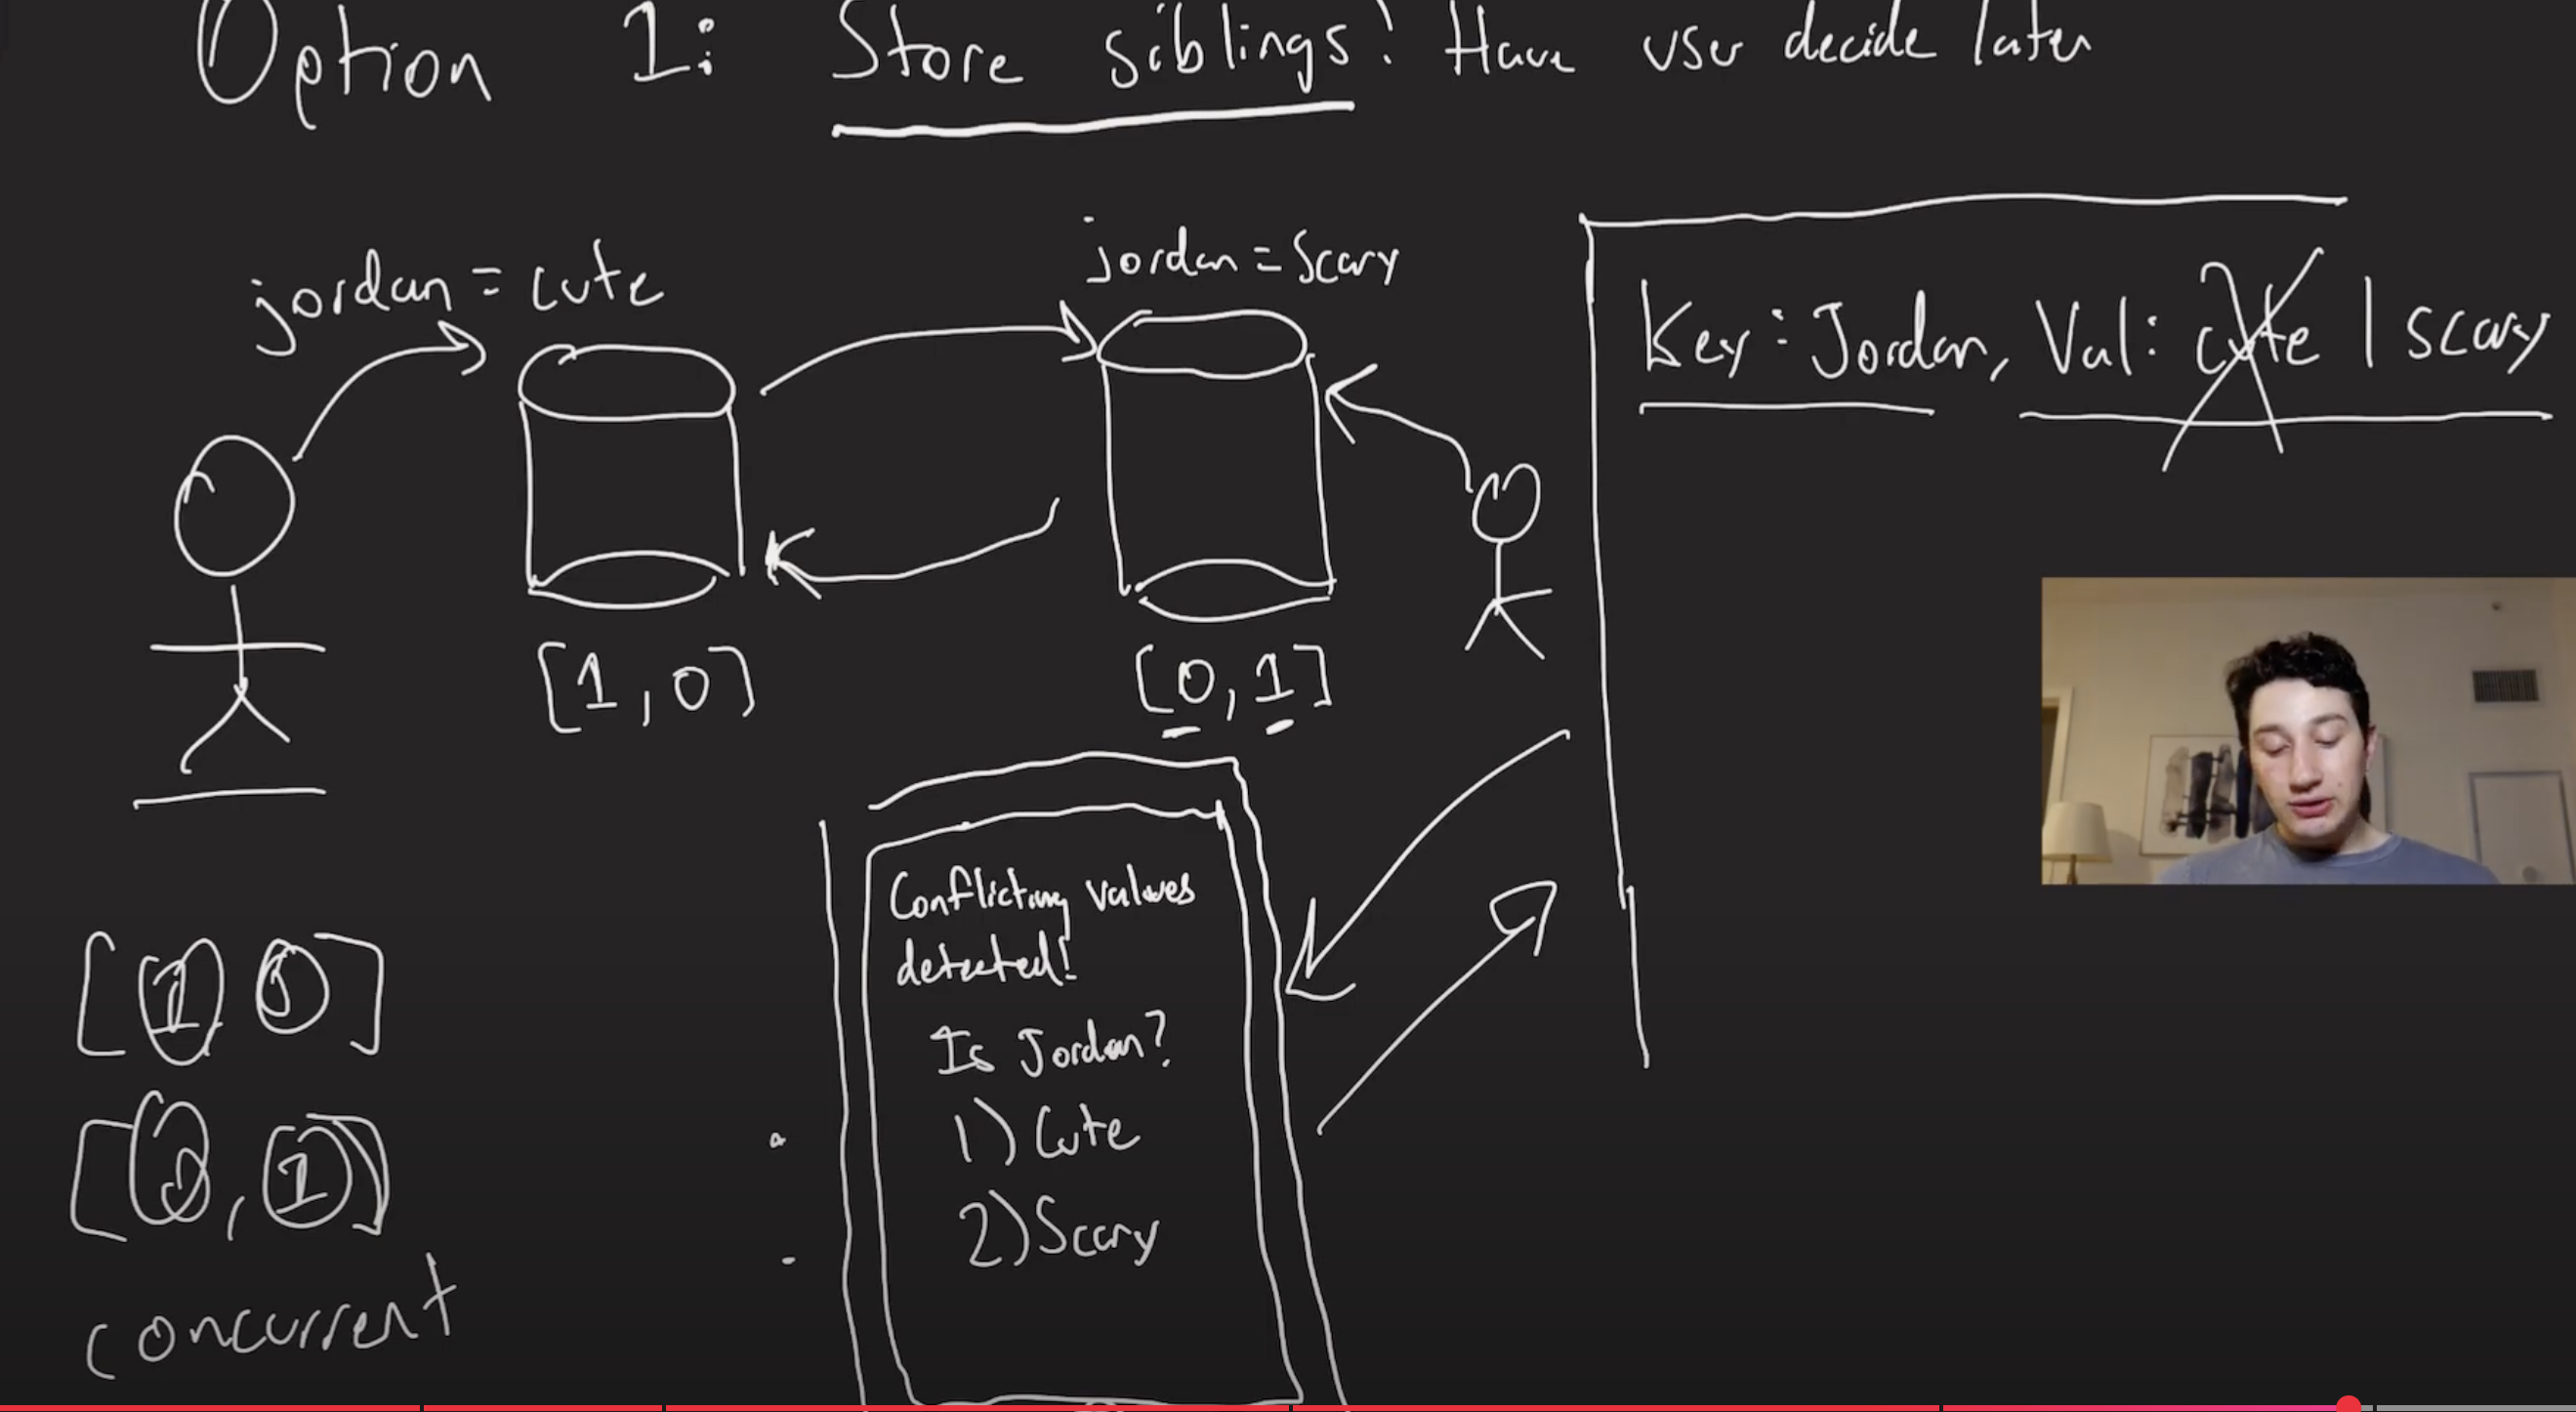 Option 1: Store siblings! Have user decide later
jordan = cute
jordan = scary
Key: Jordan, Val: cute | scary
[1, 0]
[0, 1]
Conflicting values
detected!
Is Jordan?
1) Cute
2) Scary
[1 0]
[0, 1]
concurrent